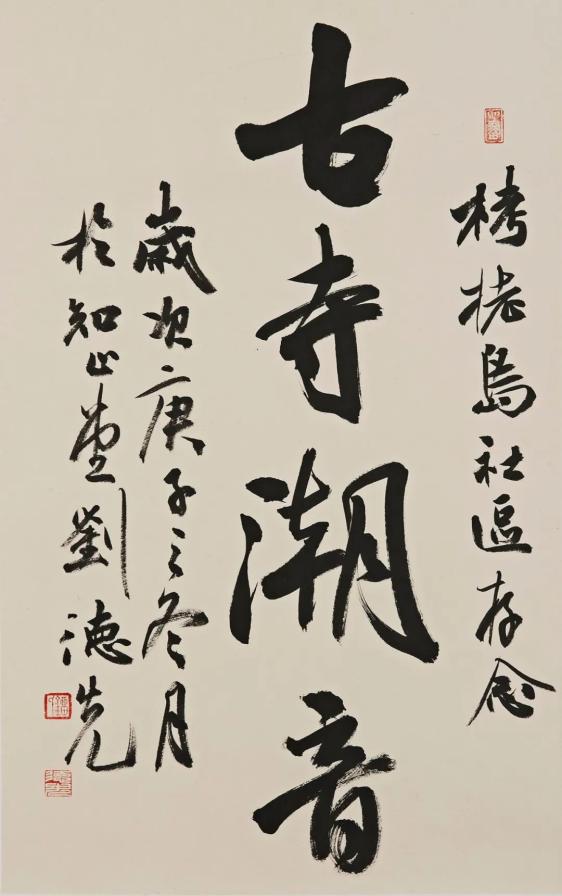 栲栳島社區存念
古寺潮音
歲次庚子之冬月
於知止堂劉德先